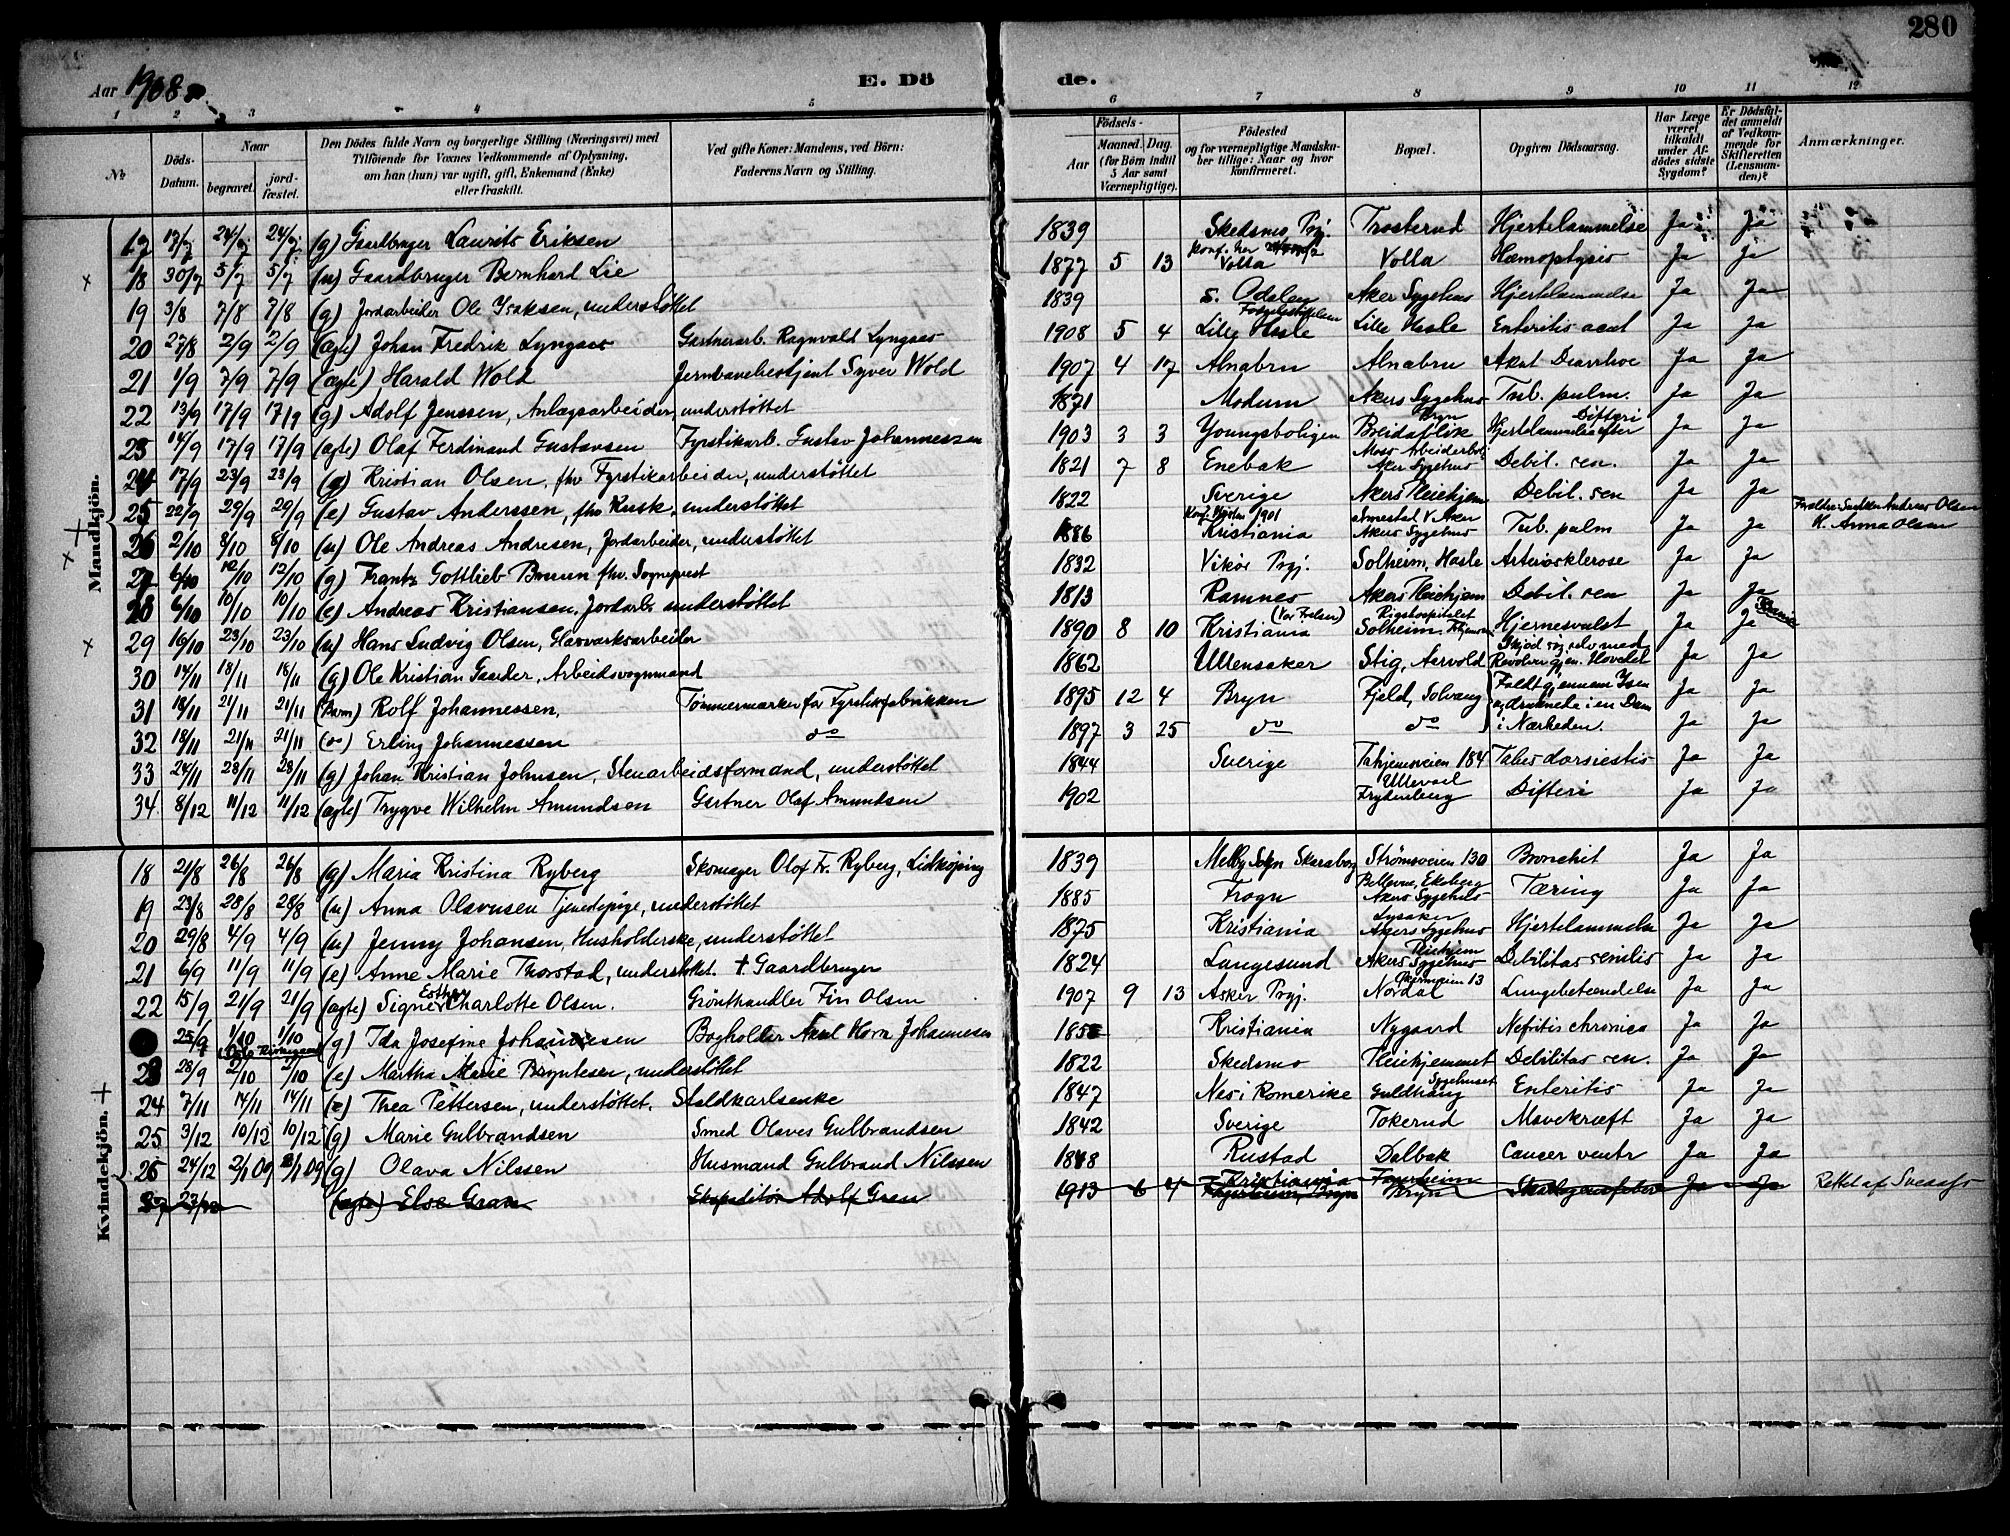 280
Aar 1908. E. Dö de.
1 2 3 4 5 6 7 8 9 10 11 12
№ Döds-Datum. Naar begravet. jord-fæstet. Den Dödes fulde Navn og borgerlige Stilling (Næringsvei) med Tilföiende for Voxnes Vedkommende af Oplysning, om han (hun) var ugift, gift, Enkemand (Enke) eller fraskilt. Ved gifte Koner: Mandens, ved Börn: Faderens Navn og Stilling. Födsels- Aar Maaned. Dag. (for Börn indtil 5 Aar samt Værnepligtige). Födested og for værnepligtige Mandskaber tillige: Naar og hvor konfirmeret. Bopæl. Opgiven Dödsaarsag. Har Læge været tilkaldt under Afdödes sidste Sygdom? Er Dödsfaldet anmeldt af Vedkommende for Skifteretten (Lensmanden)? Anmærkninger.
Mandkjön.
17 17/7 24/7 24/7 (g) Gaardbruger Laurits Eriksen 1839 Skedsmo Pgj. Trosterud Hjertelammelse Ja Ja
18 30/7 5/7 5/7 (u) Gaardbruger Bernhard Lie 1877 5 13 Konf. her Volla Volla Hæmoptysis Ja Ja
19 3/8 7/8 7/8 (g) Jordarbeider Ole Isaksen, understøttet 1839 s. Odalen Aker Sygehus Hjertelammelse Ja Ja
20 27/8 2/9 2/9 (ægte) Johan Fredrik Lyngaas Gartnerarb. Ragnvald Lyngaas 1908 5 4 Fødselsstiftelsen Lille Hasle Lille Hasle Enteritis acut Ja Ja
21 1/9 7/9 7/9 (ægte) Harald Wold Jernbanebestjent Syver Wold 1907 4 17 Alnabru Alnabru Akut Diarrhoe Ja Ja
22 13/9 17/9 17/9 (g) Adolf Jenssen, Anlægsarbeider, understøttet 1871 Modum Akers Sygehus Tub. pulm. Ja Ja
23 14/9 17/9 17/9 (ægte) Olaf Ferdinand Gustavsen Fyrstikarb. Gustav Johannessen 1903 3 3 Youngsboligen Bryn Breidablik Hjertelammelse efter Difteri Ja Ja
24 17/9 23/9 23/9 (g) Kristian Olsen, fhv Fyrstikarbeider, understøttet 1821 7 8 Enebak Moss Arbeiderbol. Aker Sygehus Debil. sen. Ja Ja
25 22/9 29/9 29/9 (e) Gustav Anderssen, fhv Kusk, understøttet 1822 Sverige Akers Pleiehjem Debil. sen Ja Ja
26 2/10 8/10 8/10 (u) Ole Andreas Andresen, Jordarbeider, understøttet 1886 Konf. Høsten 1901 Kristiania Smestad V. Aker Akers Sygehus Tub. pulm Ja Ja Forældre: Andreas Olsen K. Anna Olsen
27 6/10 12/10 12/10 (g) Frantz Gottlieb Bruun fhv. Sogneprest 1832 Vikør Pgj. Solheim, Hasle Arteriosklerose Ja Ja
28 6/10 10/10 10/10 (e) Andreas Kristiansen, Jordarb. understøttet 1813 Ramnes Akers Pleiehjem Debil. sen Ja Ja
29 16/10 23/10 23/10 (u) Hans Ludvig Olsen, Glasværksarbeider 1890 8 10 (Vor Frelser) Kristiania Rigshospitalet Solheim Hjernesvulst Ja Ja
30 14/11 18/11 18/11 (g) Ole Kristian Gander, Arbeidsvognmand 1862 Ullensaker Stig, Aarvold Skjød sig selv med Revolver gjen. Hovedet Ja Ja
31 18/11 21/11 21/11 (Barn) Rolf Johannessen, Tømmermærker for Fyrstikfabrikken 1895 12 4 Bryn Fjeld, Solvang Faldt gjennem Isen og druknede i en Dam Ja Ja
32 18/11 21/11 21/11 (do) Erling Johannessen do 1897 3 25 do do i Nærheden. Ja Ja
33 24/11 28/11 28/11 (g) Johan Kristian Johnsen, Stenarbeidsformand, understøttet 1844 Sverige Tøhjemsveien 184 Tabes dorsiestis Ja Ja
34 8/12 11/12 11/12 (ægte) Trygve Wilhelm Amundsen Gartner Olaf Amundsen 1902 Ullevaal Frydenberg Difteri Ja Ja
Kvindekjön.
18 21/8 26/8 26/8 (g) Maria Kristina Ryberg Skomager Olof Fr. Ryberg, Lidkøping 1839 Melby Sogn Skaraborg Strømsveien 130 Bronchit Ja Ja
19 23/8 28/8 28/8 (u) Anna Olavusen Tjenestepige, understøttet 1885 Frogn Bellevue, Ekeberg Akers Sygehus Tæring Ja Ja
20 29/8 4/9 4/9 (u) Jenny Johansen, Husholderske, understøttet 1875 Kristiania Lysaker Akers Sygehus Hjertelammelse Ja Ja
21 6/9 11/9 11/9 (e) Anne Marie Thorstad, understøttet. + Gaardbruger 1824 Langesund Pleiehjem Akers Sygehus Debilitas senilis Ja Ja
22 15/9 21/9 21/9 (ægte) Signe Esther Charlotte Olsen. Grønthandler Fin Olsen 1907 9 13 Asker Pgj. Nordal Lungebetændelse Ja Ja
25/9 1/10 1/10 (g) Ida Josefine Johannesen Bogholder Axel Horn Johannesen 185 Kristiania Nygaard Nefritis chronica Ja Ja
23 28/9 2/10 2/10 (e) Martha Marie Bryntesen, understøttet 1822 Skedsmo Pleiehjemmet Debilitas sen. Ja Ja
24 7/11 14/11 14/11 (e) Thea Pettersen, understøttet. Staldkarlsenke 1847 Nes i Romerike Sygehuset Guldhaug Enteritis Ja Ja
25 3/12 10/12 10/12 (g) Marie Gulbrandsen Smed Olaves Gulbrandsen 1842 Sverige Tokerud Mavekræft Ja Ja
26 24/12 2/1 09 2/1 09 (g) Olava Nilssen Husmand Gulbrand Nilssen 1848 Rustad Dalbak Cancer ventr Ja Ja
27 23/12 (ægte) Else Gran Ekspeditør Adolf Gran 1913 6 4 Kristiania Fagerheim, Bryn Fagerheim Bryn Skarlagensfeber Ja Ja Rettet af